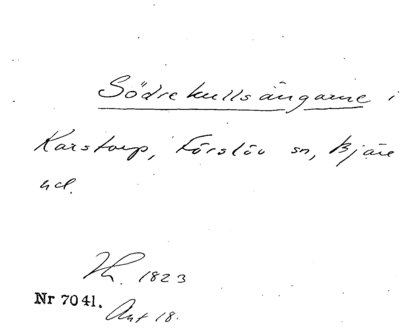 Södrekullsängarne i
Karstorp, Förslöv sn, Bjäre
hd.
Th. 1823
Nr 7041.
Ant 18.